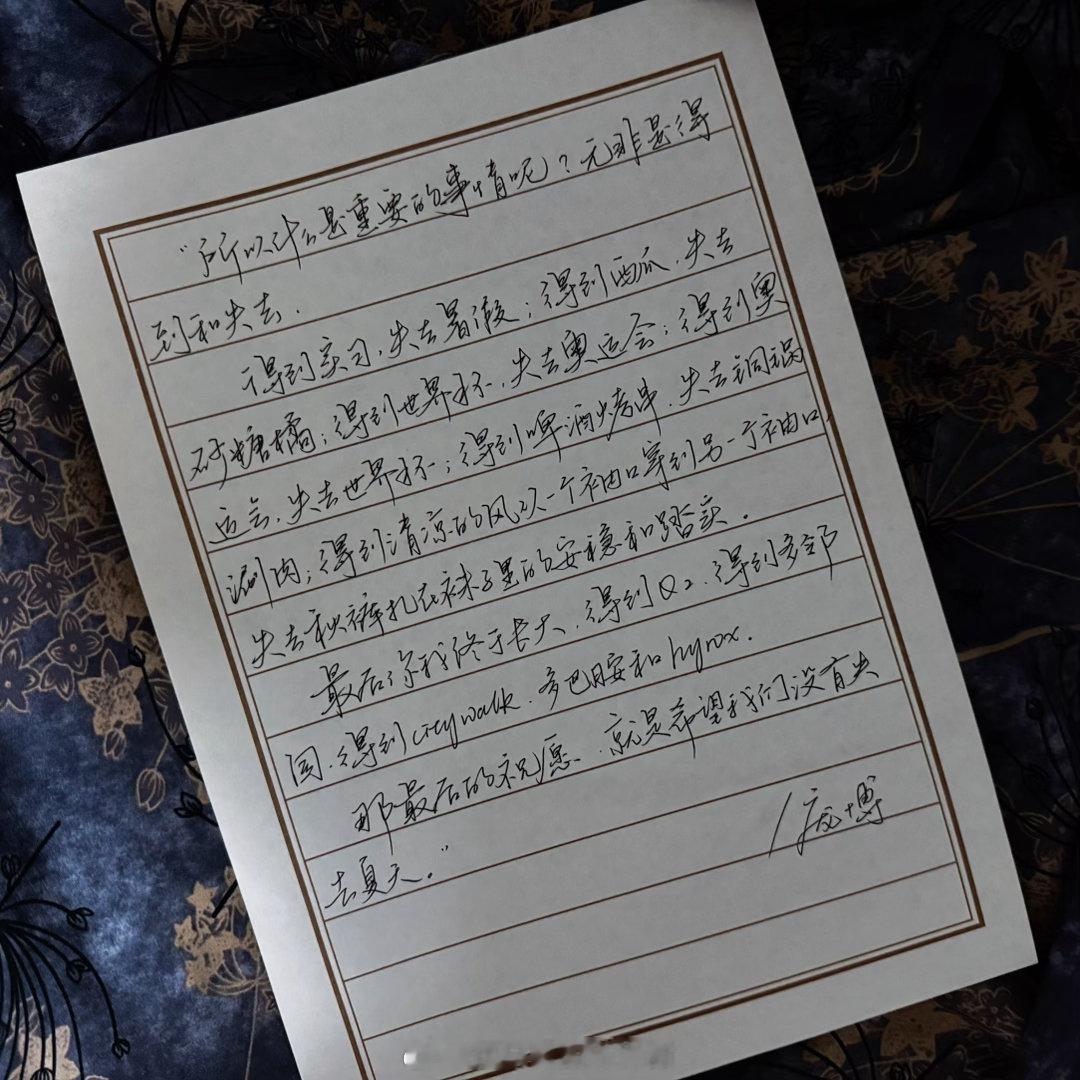 “所以什么是重要的事情呢？无非是得
到和失去.
得到实习,失去暑假;得到西瓜,失去
砂糖橘;得到世界杯,失去奥运会;得到奥
运会,失去世界杯;得到啤酒烤串,失去铜锅
涮肉;得到清凉的风从一个袖口穿到另一个袖口,
失去秋裤扎在袜子里的安稳和踏实.
最后你我终于长大,得到Q2,得到多邻
国,得到citywalk,多巴胺和hyrox.
那最后的祝愿,就是希望我们没有失
去夏天。”
/庞博